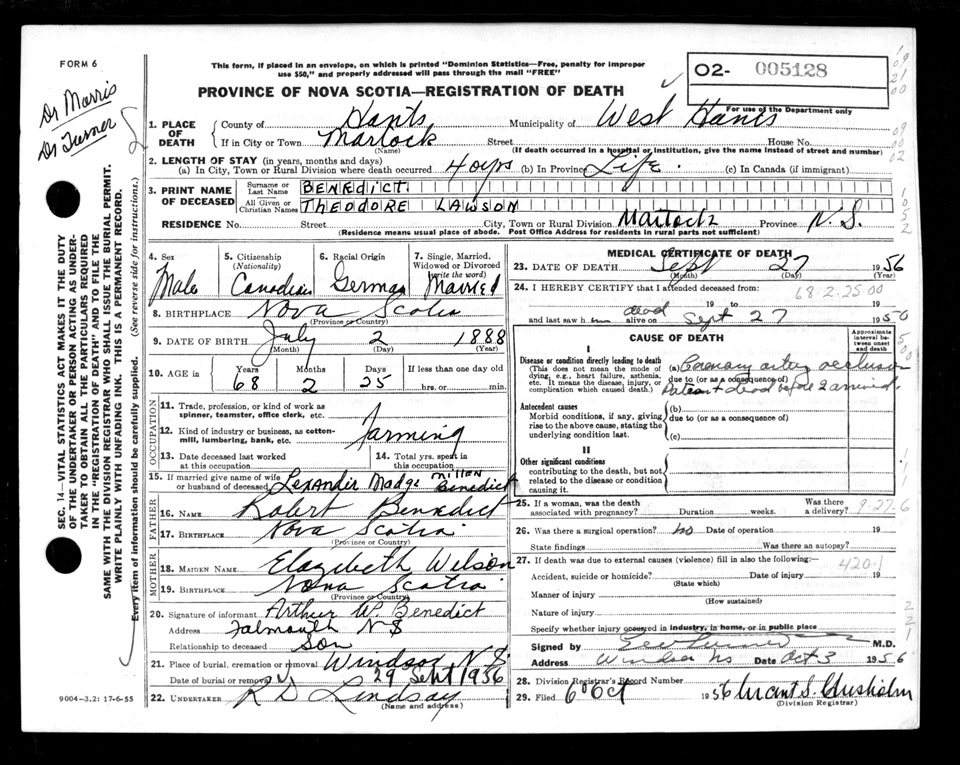 FORM 6
This form, if placed in an envelope, on which is printed "Dominion Statistics—Free, penalty for improper
use $50," and properly addressed will pass through the mail "FREE"
O2- 005128
For use of the Department only
PROVINCE OF NOVA SCOTIA—REGISTRATION OF DEATH
Dr Morris
Dr Turner
SEC. 14—VITAL STATISTICS ACT MAKES IT THE DUTY
OF THE UNDERTAKER OR PERSON ACTING AS UNDER-
TAKER TO OBTAIN ALL THE PARTICULARS REQUIRED
IN THE "REGISTRATION OF DEATH" AND TO FILE THE
SAME WITH THE DIVISION REGISTRAR WHO SHALL ISSUE THE BURIAL PERMIT.
WRITE PLAINLY WITH UNFADING INK. THIS IS A PERMANENT RECORD.
Every item of information should be carefully supplied. (See reverse side for instructions.)
1. PLACE OF DEATH County of Hants Municipality of West Hants
If in City or Town Martock Street House No.
(Name) (If death occurred in a hospital or institution, give the name instead of street and number)
2. LENGTH OF STAY (in years, months and days)
(a) In City, Town or Rural Division where death occurred 40 yrs (b) In Province Life (c) In Canada (if immigrant)
3. PRINT NAME OF DECEASED Surname or Last Name BENEDICT
All Given or Christian Names THEODORE LAWSON
RESIDENCE No. Street City, Town or Rural Division Martock Province N.S.
(Residence means usual place of abode. Post Office Address for residents in rural parts not sufficient)
4. Sex 5. Citizenship (Nationality) 6. Racial Origin 7. Single, Married, Widowed or Divorced (write the word)
Male Canadian German Married
8. BIRTHPLACE Nova Scotia
(Province or Country)
9. DATE OF BIRTH July 2 1888
(Month) (Day) (Year)
10. AGE Years Months Days If less than one day old
68 2 25 hrs. or min.
OCCUPATION
11. Trade, profession, or kind of work as
spinner, teamster, office clerk, etc.
12. Kind of industry or business, as cotton-
mill, lumbering, bank, etc. Farming
13. Date deceased last worked at this occupation 14. Total yrs. spent in this occupation
15. If married give name of wife or husband of deceased Lexandir Madge Millen Benedict
FATHER
16. NAME Robert Benedict
17. BIRTHPLACE Nova Scotia
(Province or Country)
MOTHER
18. MAIDEN NAME Elazibeth Wilson
19. BIRTHPLACE Nova Scotia
(Province or Country)
20. Signature of informant Arthur W. Benedict
Address Falmouth NS
Relationship to deceased Son
21. Place of burial, cremation or removal Windsor N.S.
Date of burial or removal 29 Sept 1956
22. UNDERTAKER R D Lindsay
(Name and address)
9004-3.2: 17-6-55
MEDICAL CERTIFICATE OF DEATH
23. DATE OF DEATH Sept 27 1956
(Month) (Day) (Year)
24. I HEREBY CERTIFY that I attended deceased from:
68-2-25-00
19 to 19
and last saw h im dead alive on Sept 27 1956
CAUSE OF DEATH
Approximate interval between onset and death
I
Disease or condition directly leading to death
(This does not mean the mode of dying, e.g., heart failure, asthenia, etc. It means the disease, injury, or complication which caused death.)
(a) Coronary artery occlusion
due to (or as a consequence of)
Patient dead before I arrived.
Antecedent causes
Morbid conditions, if any, giving rise to the above cause, stating the underlying condition last.
(b)
due to (or as a consequence of)
(c)
II
Other significant conditions
contributing to the death, but not related to the disease or condition causing it.
25. If a woman, was the death associated with pregnancy? Duration weeks. Was there a delivery?
9-27-6
26. Was there a surgical operation? no Date of operation 19
State findings Was there an autopsy?
27. If death was due to external causes (violence) fill in also the following:-
420-1
Accident, suicide or homicide? Date of injury 19
(State which)
Manner of injury
(How sustained)
Nature of injury
Specify whether injury occurred in industry, in home, or in public place
Signed by M.D.
Address Windsor NS Date Oct 3 1956
28. Division Registrar's Record Number
29. Filed 6 Oct 1956 Grant S. Chisholm
(Division Registrar)